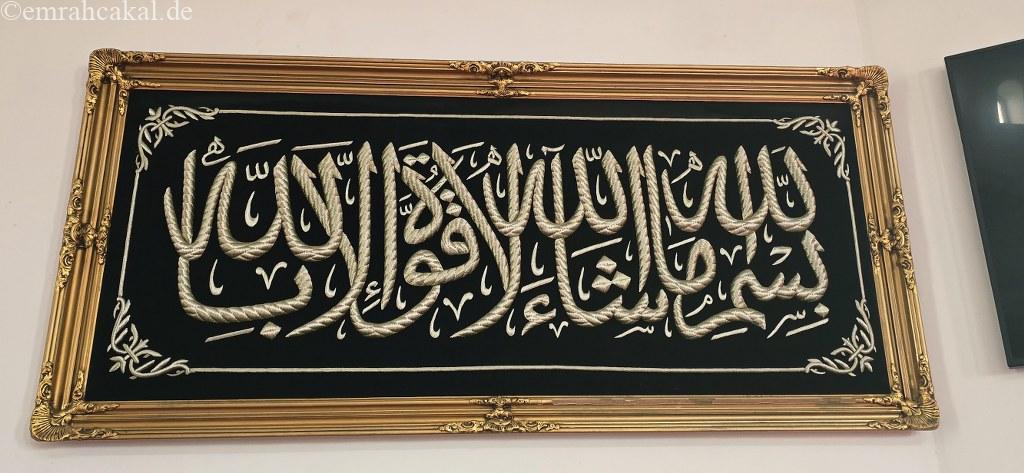 ©emrahcakal.de
بِسْمِ اللّٰهِ مَا شَاءَ اللّٰهُ لَا قُوَّةَ إِلَّا بِاللّٰهِ